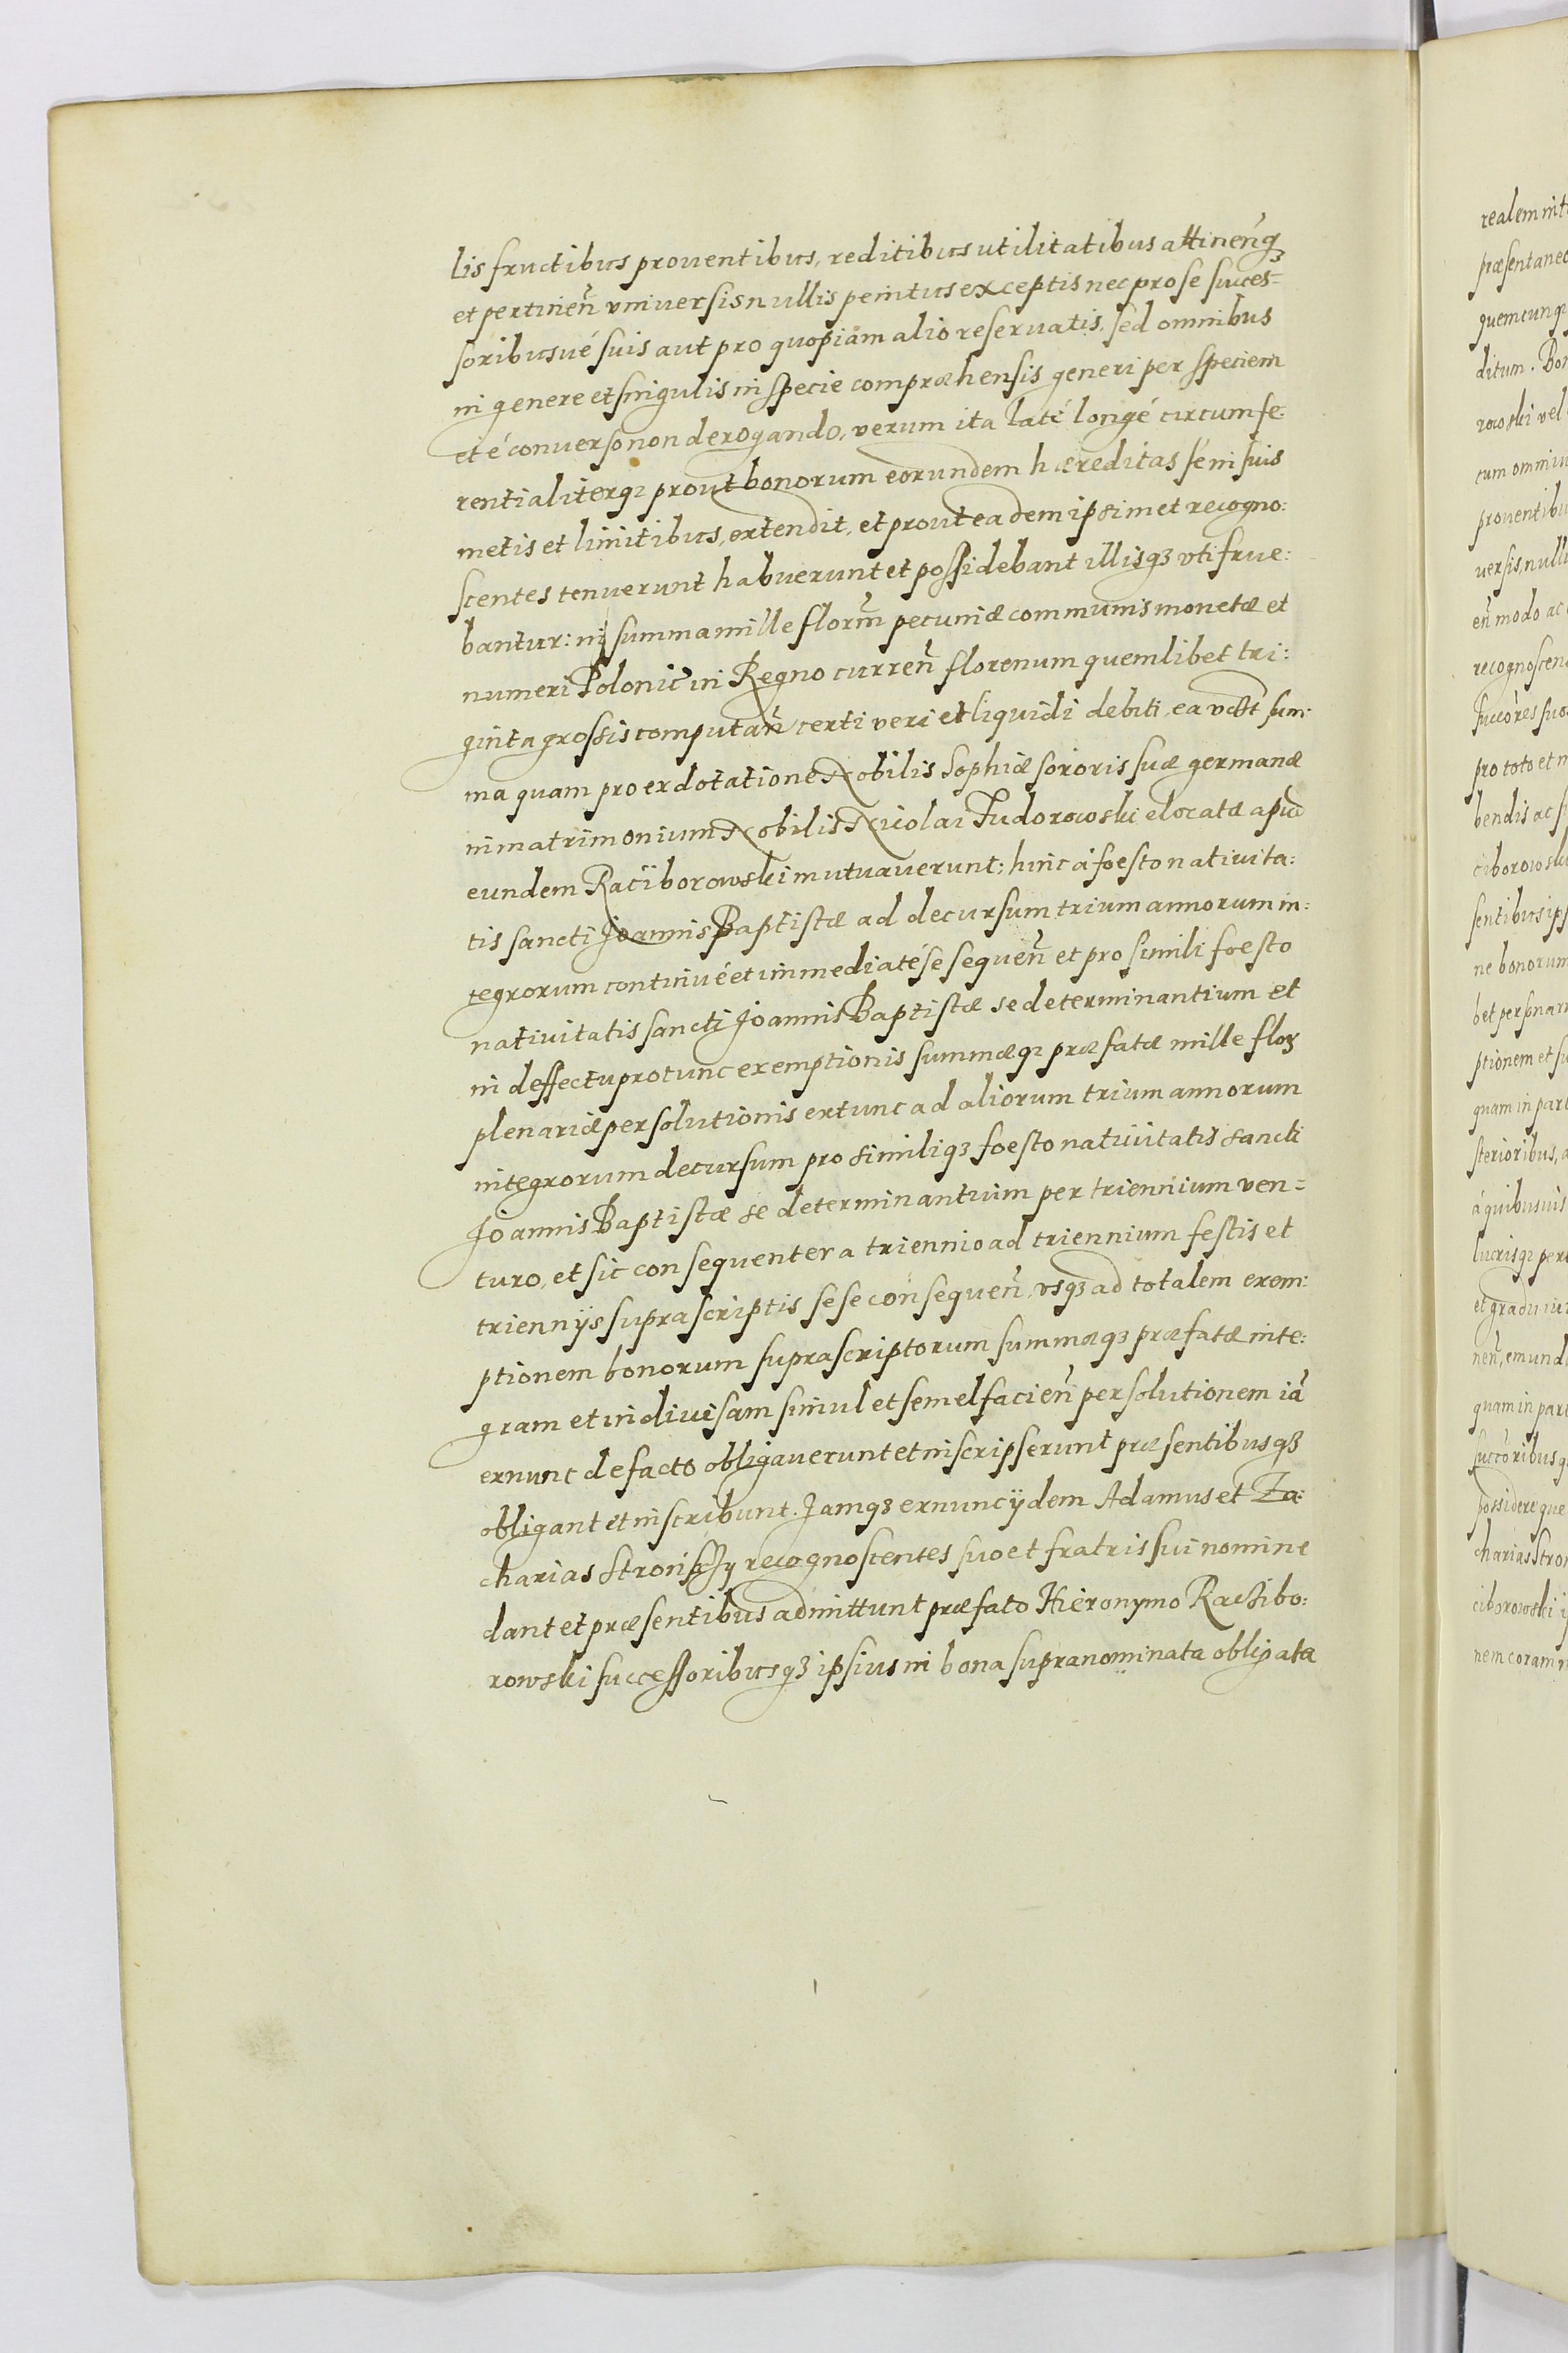 lis fructibus prouentibus, reditibus utilitatibus attineñq3
et pertineñ vniuersis nullis penitus exceptis nec pro se succes-
soribusué suis aut pro quopiam alio reseruatis, sed omnibus
in genere et singulis in specie compræhensis generi per speciem
et é conuerso non derogando, verum ita laté longé circumfe-
rentialiterq3 prout bonorum eorundem hæreditas se in suis
metis et limitibus, extendit, et prout eadem ipsimet recogno:
scentes tenuerunt habuerunt et possidebant illisq3 vtifrue:
bantur: in summa mille florm̃ pecuniæ communis monetæ et
numeri Polonic̃ in Regno curreñ florenum quemlibet tri:
ginta grossis computañ certi veri et liquidi debiti, ea vctt sum-
ma quam pro exdotatione Nobilis Sophiæ sororis suæ germanæ
in matrimonium Nobilis Nicolai Fudorowski elocatæ apud
eundem Raciborowski mutuauerunt; hinc á foesto natiuita:
tis sancti Joannis Baptistæ ad decursum trium annorum in:
tegrorum continué et immediaté se sequeñ et pro simili foesto
natiuitatis sancti Joannis Baptistæ se determinantium et
in deffectu pro tunc exemptionis summæq3 præfatæ mille flor
plenariæ persolutionis extunc ad aliorum trium annorum
integrorum decursum pro similiq3 foesto natiuitatis sancti
Joannis Baptistæ se determinantium per triennium ven=
turo, et sic consequenter a triennio ad triennium festis et
triennijs suprascriptis sese consequeñ, vsq3 ad totalem exem:
ptionem bonorum suprascriptorum summæq3 præfatæ inte:
gram et indiuisam simul et semel facieñ persolutionem iã
exnunc de facto obligauerunt et inscripserunt præsentibusq3
obligant et inscribunt. Jamq3 exnunc ijdem Adamus et Za:
charias recognoscentes suo et fratris sui nomine
dant et præsentibus admittunt præfato Hieronymo Racibo:
rowski successoribusq3 ipsius in bona supranominata obligata